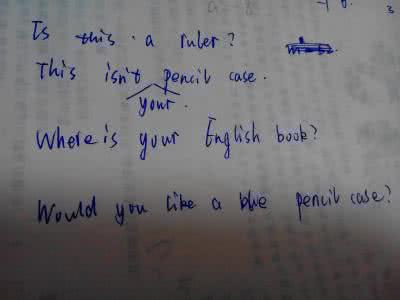 Is this a ruler?
This isn't pencil case.
your.
Where is your English book?
Would you like a blue pencil case?